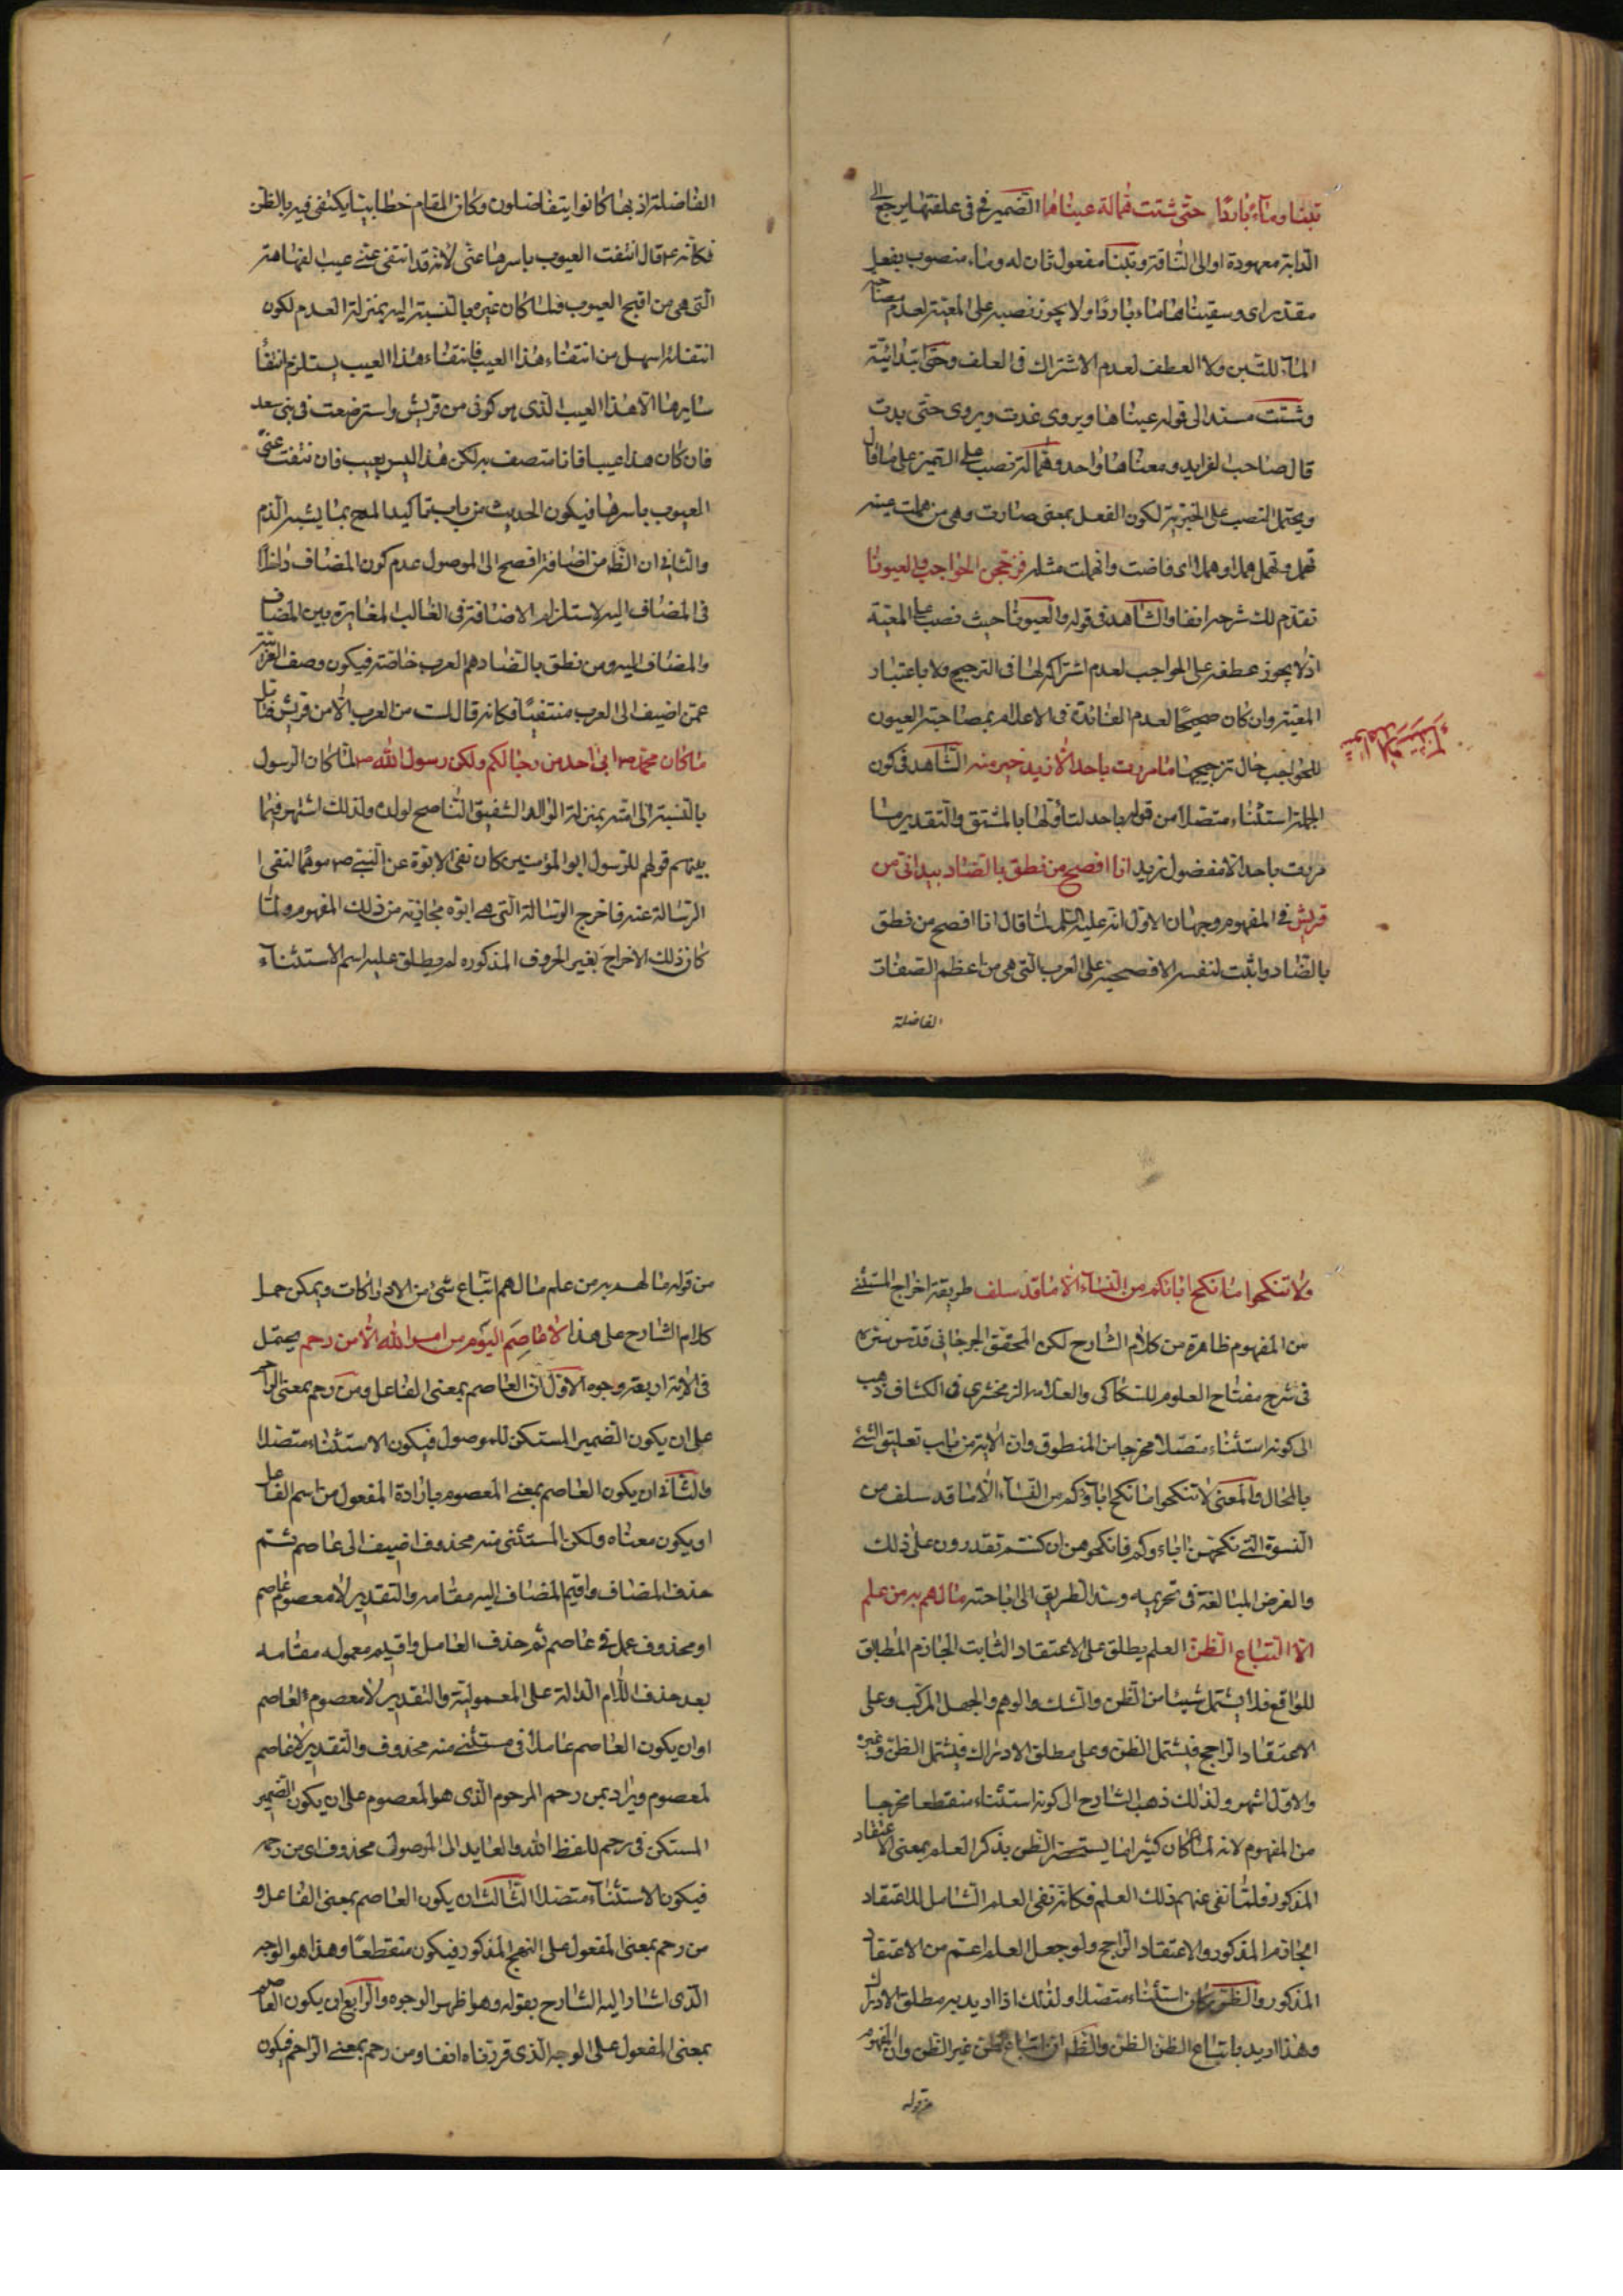 تبنا وماء باردا حتى شتت همالة عيناها الضمير في علفتها يرجع الى
الدابة معهودة او الى الناقة وتبنا مفعول ثان له وماء منصوب بفعل
مقدر اى وسقيتها ماء باردا ولا يجوز نصبه على المعية لعدم مصاحبة
الماء للتبن ولا العطف لعدم الاشتراك فى العلف وحتى ابتدائية
وشتت مسند الى قوله عيناها ويروى غدت ويروى حتى بدت
قال صاحب الفرايد ومعناها واحد وهمالة نصب على التميز على ما قال
ويحتمل النصب على الخبرية لكون الفعل بمعنى صارت وهى من هملت عينه
تهمل وتهمل هملا وهملانا اى فاضت وانهملت مثله وزججن الحواجب والعيونا
تقدم لك شرحه انفا والشاهد فى قوله والعيونا حيث نصب على المعية
اذ لا يجوز عطفه على الحواجب لعدم اشتراكه لها فى الترجيج ولا باعتبار
المعية وان كان صحيحا لعدم الفائدة فى الاعلام بمصاحبة العيون
للحواجب حال ترجيجها ما مررت باحد الا زيد خير منه الشاهد فى كون
شواهد الاستثناء
الجملة استثناء متصلا من قوله باحد لتأولها بالمشتق والتقدير ما
مررت باحد الا مفضول بزيد انا افصح من نطق بالضاد بيد انى من
قريش فى المفهوم وجهان الاول انه عليه السلم لما قال انا افصح من نطق
بالضاد واثبت لنفسه الافصحية على العرب التى هى من اعظم الصفات
الفاضلة
الفاضلة اذ بها كانوا يتفاضلون وكان المقام خطابيا يكتفى فيه بالظن
فكانه ع قال انتفت العيوب باسرها عنى لانه قد انتفى عنى عيب الفهاهة
التى هى من اقبح العيوب فلما كان غيره بالنسبة اليه بمنزلة العدم لكون
انتفائه اسهل من انتفاء هذا العيب فانتفاء هذا العيب يستلزم انتفاء
سايرها الا هذا العيب الذى هو كونى من قريش واسترضعت فى بنى سعد
فان كان هذا عيبا فانا متصف به لكن هذا ليس بعيب فانتفت عنى
العيوب باسرها فيكون الحديث من باب تأكيد المدح بما يشبه الذم
والثانى ان الظ من اضافة افصح الى الموصول عدم كون المضاف داخلا
فى المضاف اليه لاستلزام الاضافة فى الغالب المغايرة بين المضاف
والمضاف اليه ومن نطق بالضاد هم العرب خاصة فيكون وصف العربية
عمن اضيف الى العرب منتفيا فكانه قال لست من العرب الا من قريش فتأمل
ما كان محمد ص ابى احد من رجالكم ولكن رسول الله ص لما كان الرسول
بالنسبة الى امته بمنزلة الوالد الشفيق الناصح لولده ولذلك اشتهر فيما
بينهم قولهم للرسول ابو المؤمنين كان نفى الابوة عن النبى ص موهما لنفى
الرسالة عنه فاخرج الرسالة التى هى ابوه مجازية من ذلك المفهوم ولما
كان ذلك الاخراج بغير الحروف المذكوره لم يطلق عليه اسم الاستثناء
ولا تنكحوا ما نكح اباؤكم من النساء الا ما قد سلف طريقة اخراج المستثنى
من المفهوم ظاهرة من كلام الشارح لكن المحقق الجرجانى قدس سره
فى شرح مفتاح العلوم للسكاكى والعلامه الزمخشرى فى الكشاف ذهب
الى كونه استثناء متصلا مخرجا من المنطوق وان الاية من باب تعليق الشئ
بالمحال والمعنى لا تنكحوا ما نكح اباؤكم من النساء الا ما قد سلف من
النسوة التى نكحتهن اباءوكم فانكحوهن ان كنتم تقدرون على ذلك
والغرض المبالغة فى تحريمه وسد الطريق الى اباحته ما لهم به من علم
الا اتباع الظن العلم يطلق على الاعتقاد الثابت الجازم المطابق
للواقع فلا يشتمل شيئا من الظن والشك والوهم والجهل المركب وعلى
الاعتقاد الراجح فيشتمل الظن وعلى مطلق الادراك فيشتمل الظن وغيره
والاول اشهر ولذلك ذهب الشارح الى كونه استثناء منقطعا مخرجا
من المفهوم لانه لما كان كثيرا ما يستحضر الظن بذكر العلم بمعنى الاعتقاد
المذكور فلما نفى عنهم ذلك العلم فكانه نفى العلم الشامل للاعتقاد
الجازم المذكور والاعتقاد الراجح ولو جعل العلم اعم من الاعتقاد
المذكور والظن كان استثناء متصلا ولذلك اذا اريد به مطلق الادراك
وهذا اريد باتباع الظن الظن والظ ان اتباع الظن غير الظن وان المفهوم
من قوله
من قوله ما لهم به من علم ما لهم اتباع شئ من الادراكات ويمكن حمل
كلام الشارح على هذا لا عاصم اليوم من امر الله الا من رحم يحتمل
فى الاية اربعة وجوه الاول ان العاصم بمعنى الفاعل ومن رحم بمعنى الراحم
على ان يكون الضمير المستكن للموصول فيكون الاستثناء متصلا
والثانى ان يكون العاصم بمعنى المعصوم بارادة المفعول من اسم الفاعل
او يكون معناه ولكن المستثنى منه محذوف اضيف الى عاصم ثم
حذف المضاف واقيم المضاف اليه مقامه والتقدير لا معصوم عاصم
او محذوف عمل فى عاصم ثم حذف العامل واقيم معموله مقامه
بعد حذف اللام الدالة على المعمولية والتقدير لا معصوم لعاصم
او ان يكون العاصم عاملا فى مستثنى منه محذوف والتقدير لا عاصم
لمعصوم ويراد بمن رحم المرحوم الذى هو المعصوم على ان يكون الضمير
المستكن فى رحم للفظ الله والعايد الى الموصول محذوف اى من رحمه
فيكون الاستثناء متصلا الثالث ان يكون العاصم بمعنى الفاعل و
من رحم بمعنى المفعول على النهج المذكور فيكون منقطعا وهذا هو الوجه
الذى اشار اليه الشارح بقوله وهو اظهر الوجوه والرابع ان يكون العاصم
بمعنى المفعول على الوجه الذى قررناه انفا ومن رحم بمعنى الراحم فيكون